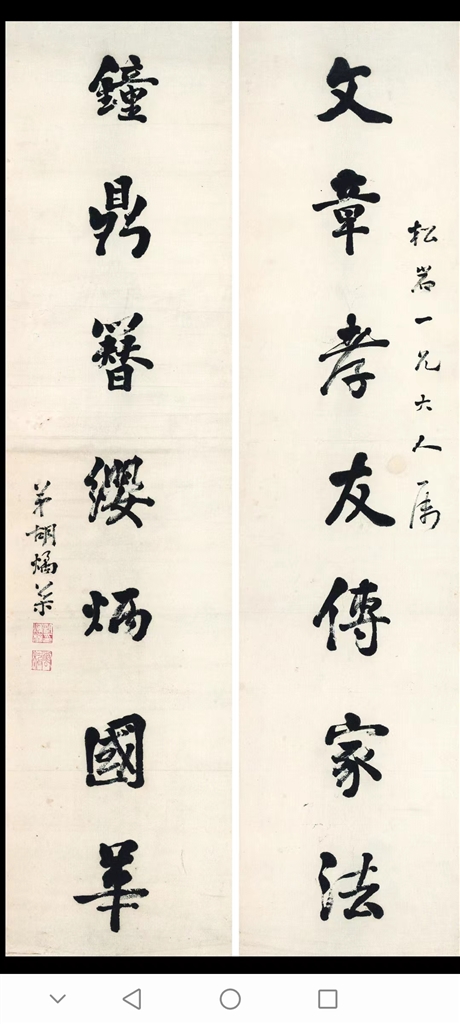 松岩一兄大人属
文章孝友傳家法
鐘鼎簪纓炳國華
弟胡燏棻